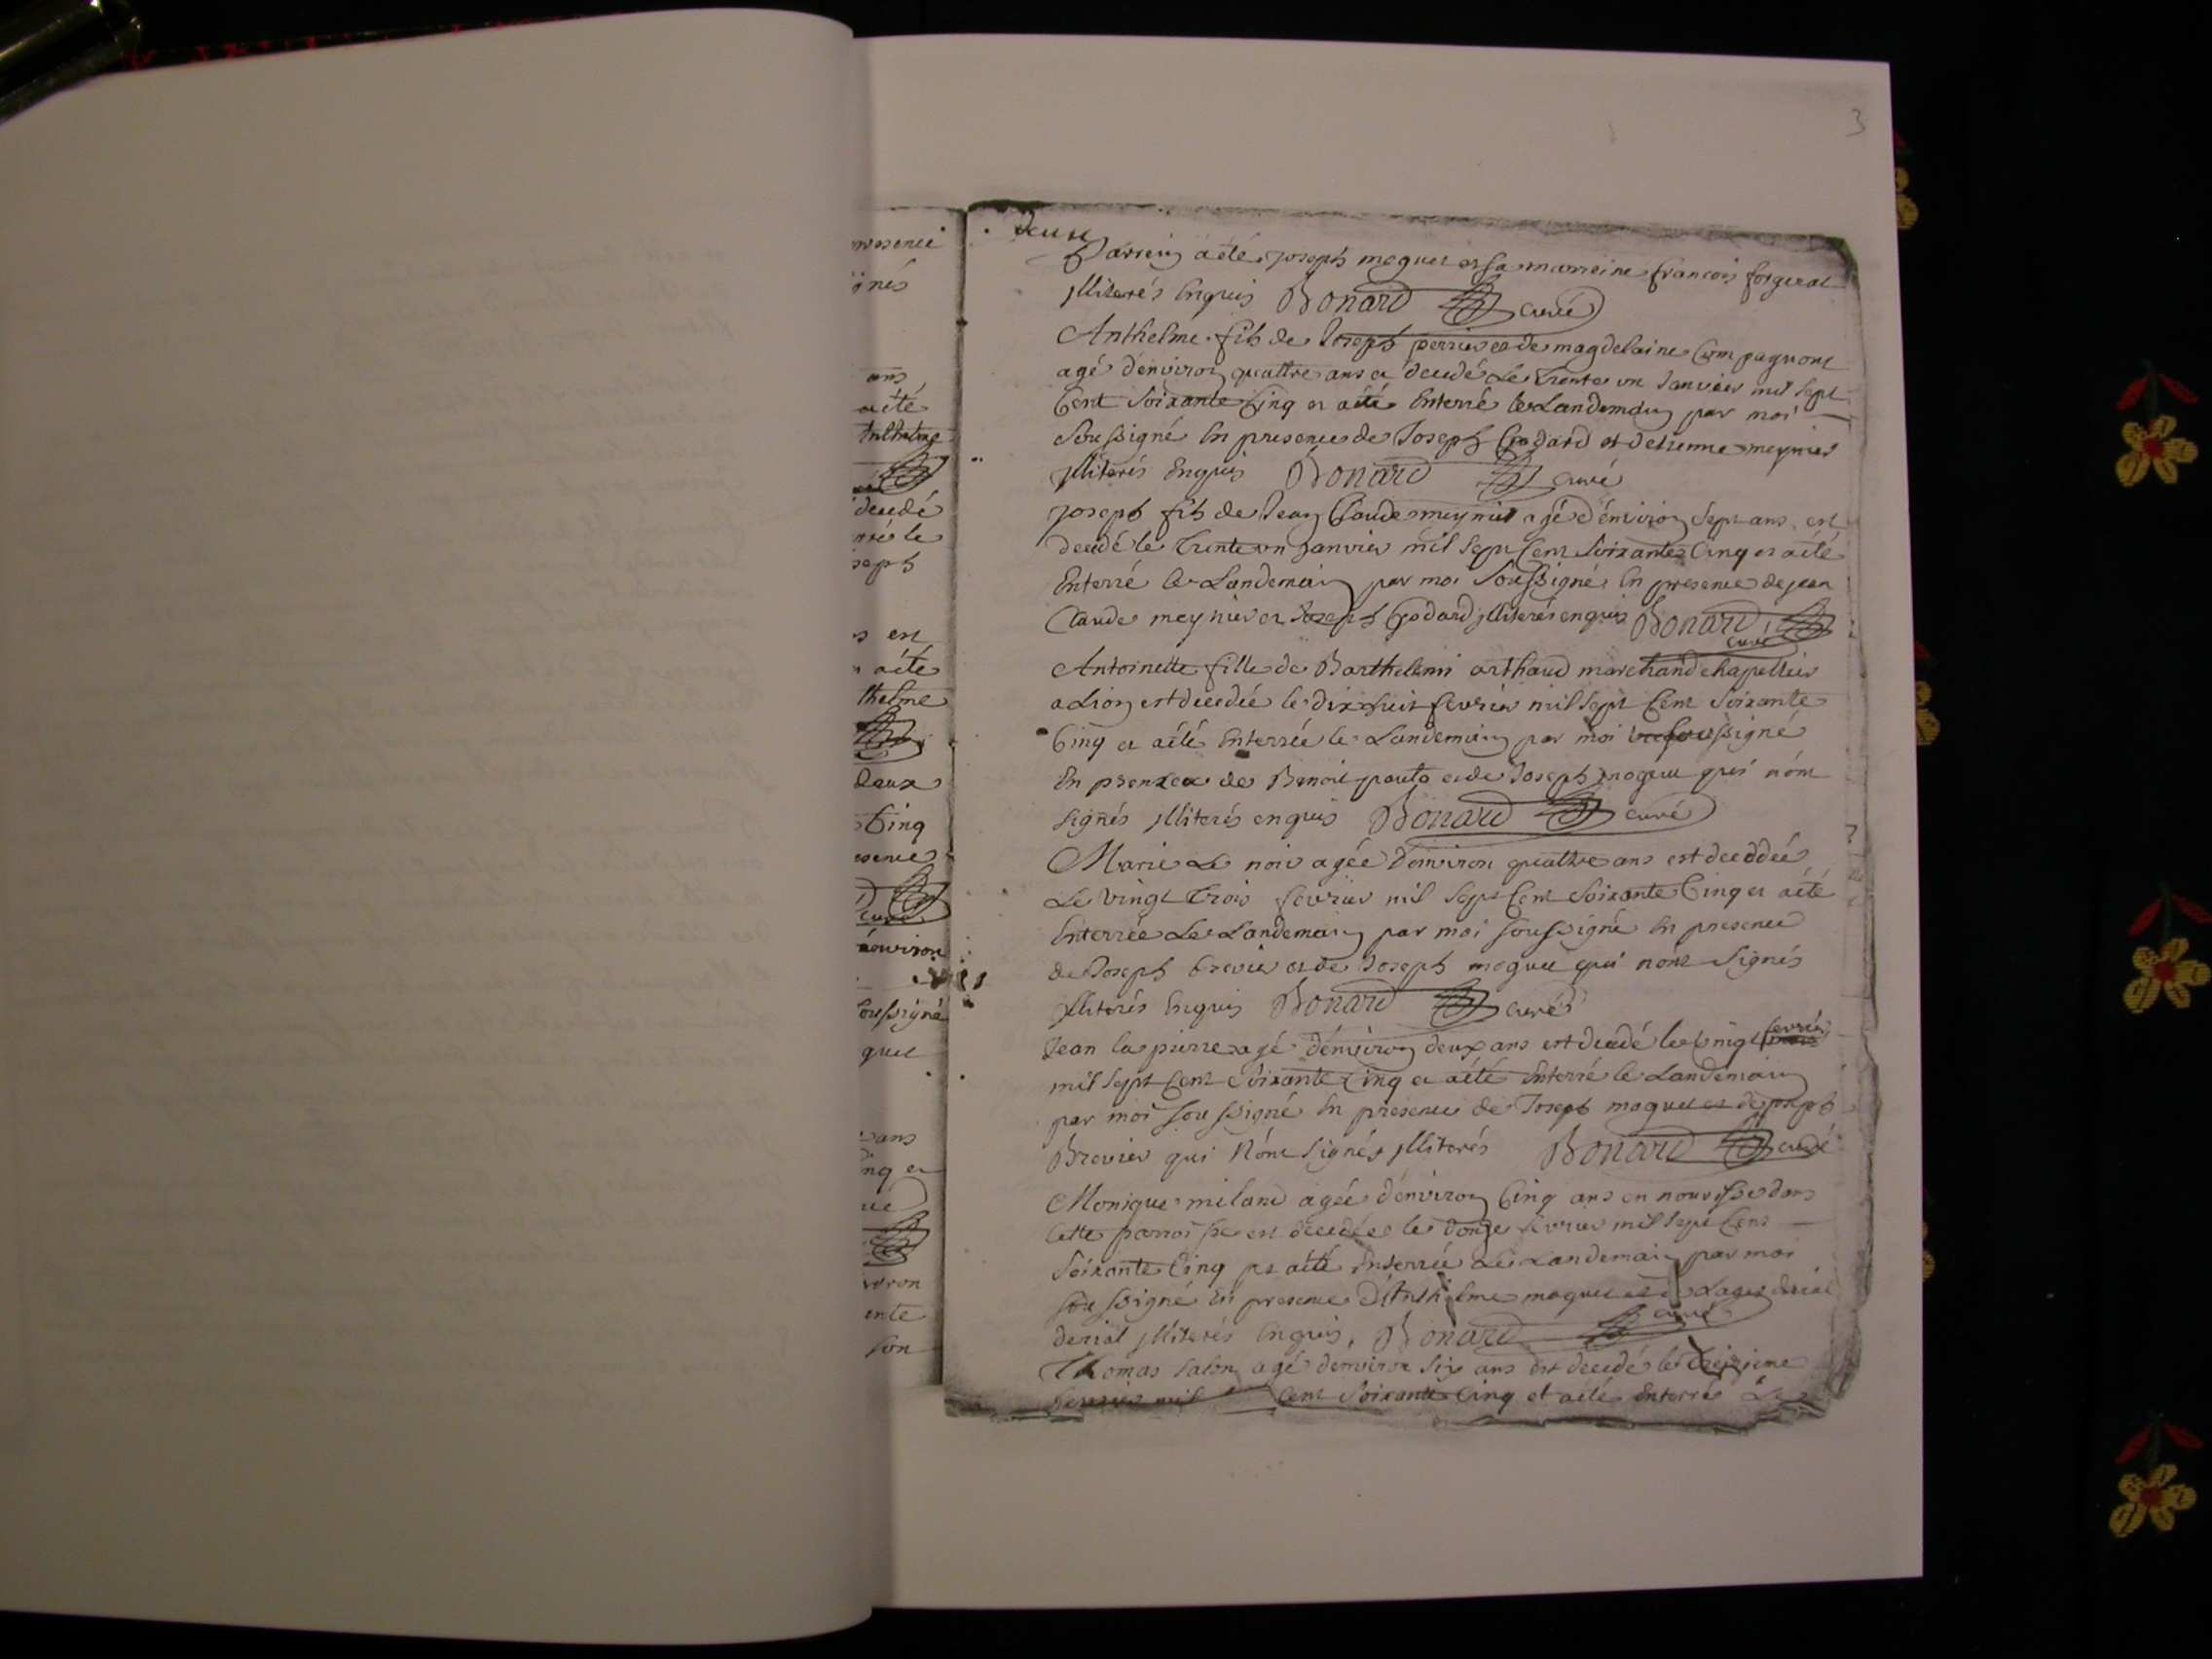 3
presence
gnés
ans
aété
decedé
terré le
seph
s est
aété
thelme
deux
Cinq
esence
curé
néoviron
soussigné
guet
ans
inq et
viron
ente
son
deux
Parrein aété joseph moguet et sa marreine francois forgerat
jlliterés Enquis Bonard curé
Anthelme fils de Joseph perrier et de magdelaine Compagnont
agé d'environ quattre ans et decedé Le trente un Janvier mil sept
Cent Soixante Cinq et aété Enterré le Landemain par moi
Soussigné En presence de Joseph Godard et detienne meynier
jlliterés Enquis Bonard curé
joseph fils de Jean Claude meynier agé d'environ Sept ans est
decedé le trente un janvier mil Sept Cent Soixante Cinq et aété
Enterré le Landemain par moi Soussigné En presence de jean
Claude meynier et Joseph Godard jlliterés enquis Bonard curé
Antoinette fille de Barthelemi arthaud marchand chapellier
a Lion est decedée le dixhuit fevrier mil Sept Cent Soixante
Cinq et aété Enterrée le Landemain par moi soussigné
En de Benoit et de Joseph moguet qui nont
signés jlliterés enquis Bonard curé
Marie Le noir agée d'environ quattre ans est decedée
Le vingt trois fevrier mil Sept Cent Soixante Cinq et aété
Enterrée Le Landemain par moi soussigné En presence
de Joseph brevier et de Joseph moguet qui nont Signés
jlliterés Enquis Bonard curé
Jean la pierre agé d'environ deux ans est decedé le vingt fevrier
mil Sept Cent Soixante Cinq et aété Enterré le Landemain
par moi soussigné En presence de Joseph moguet et de joseph
Brevier qui Nont Signés jlliterés Bonard curé
Monique miland agée d'environ Cinq ans en nourisse dans
Cette parroisse est decedée le donze fevrier mil Sept Cens
Soixante Cinq et aété Enterrée Le Landemain par moi
soussigné En presence d'Anthelme moguet
derial jlliterés Enquis, Bonard curé
Thomas Salon agé denviron Six ans est decedé le treizieme
fevrier mil Cent Soixante Cinq et aété Enterré Le